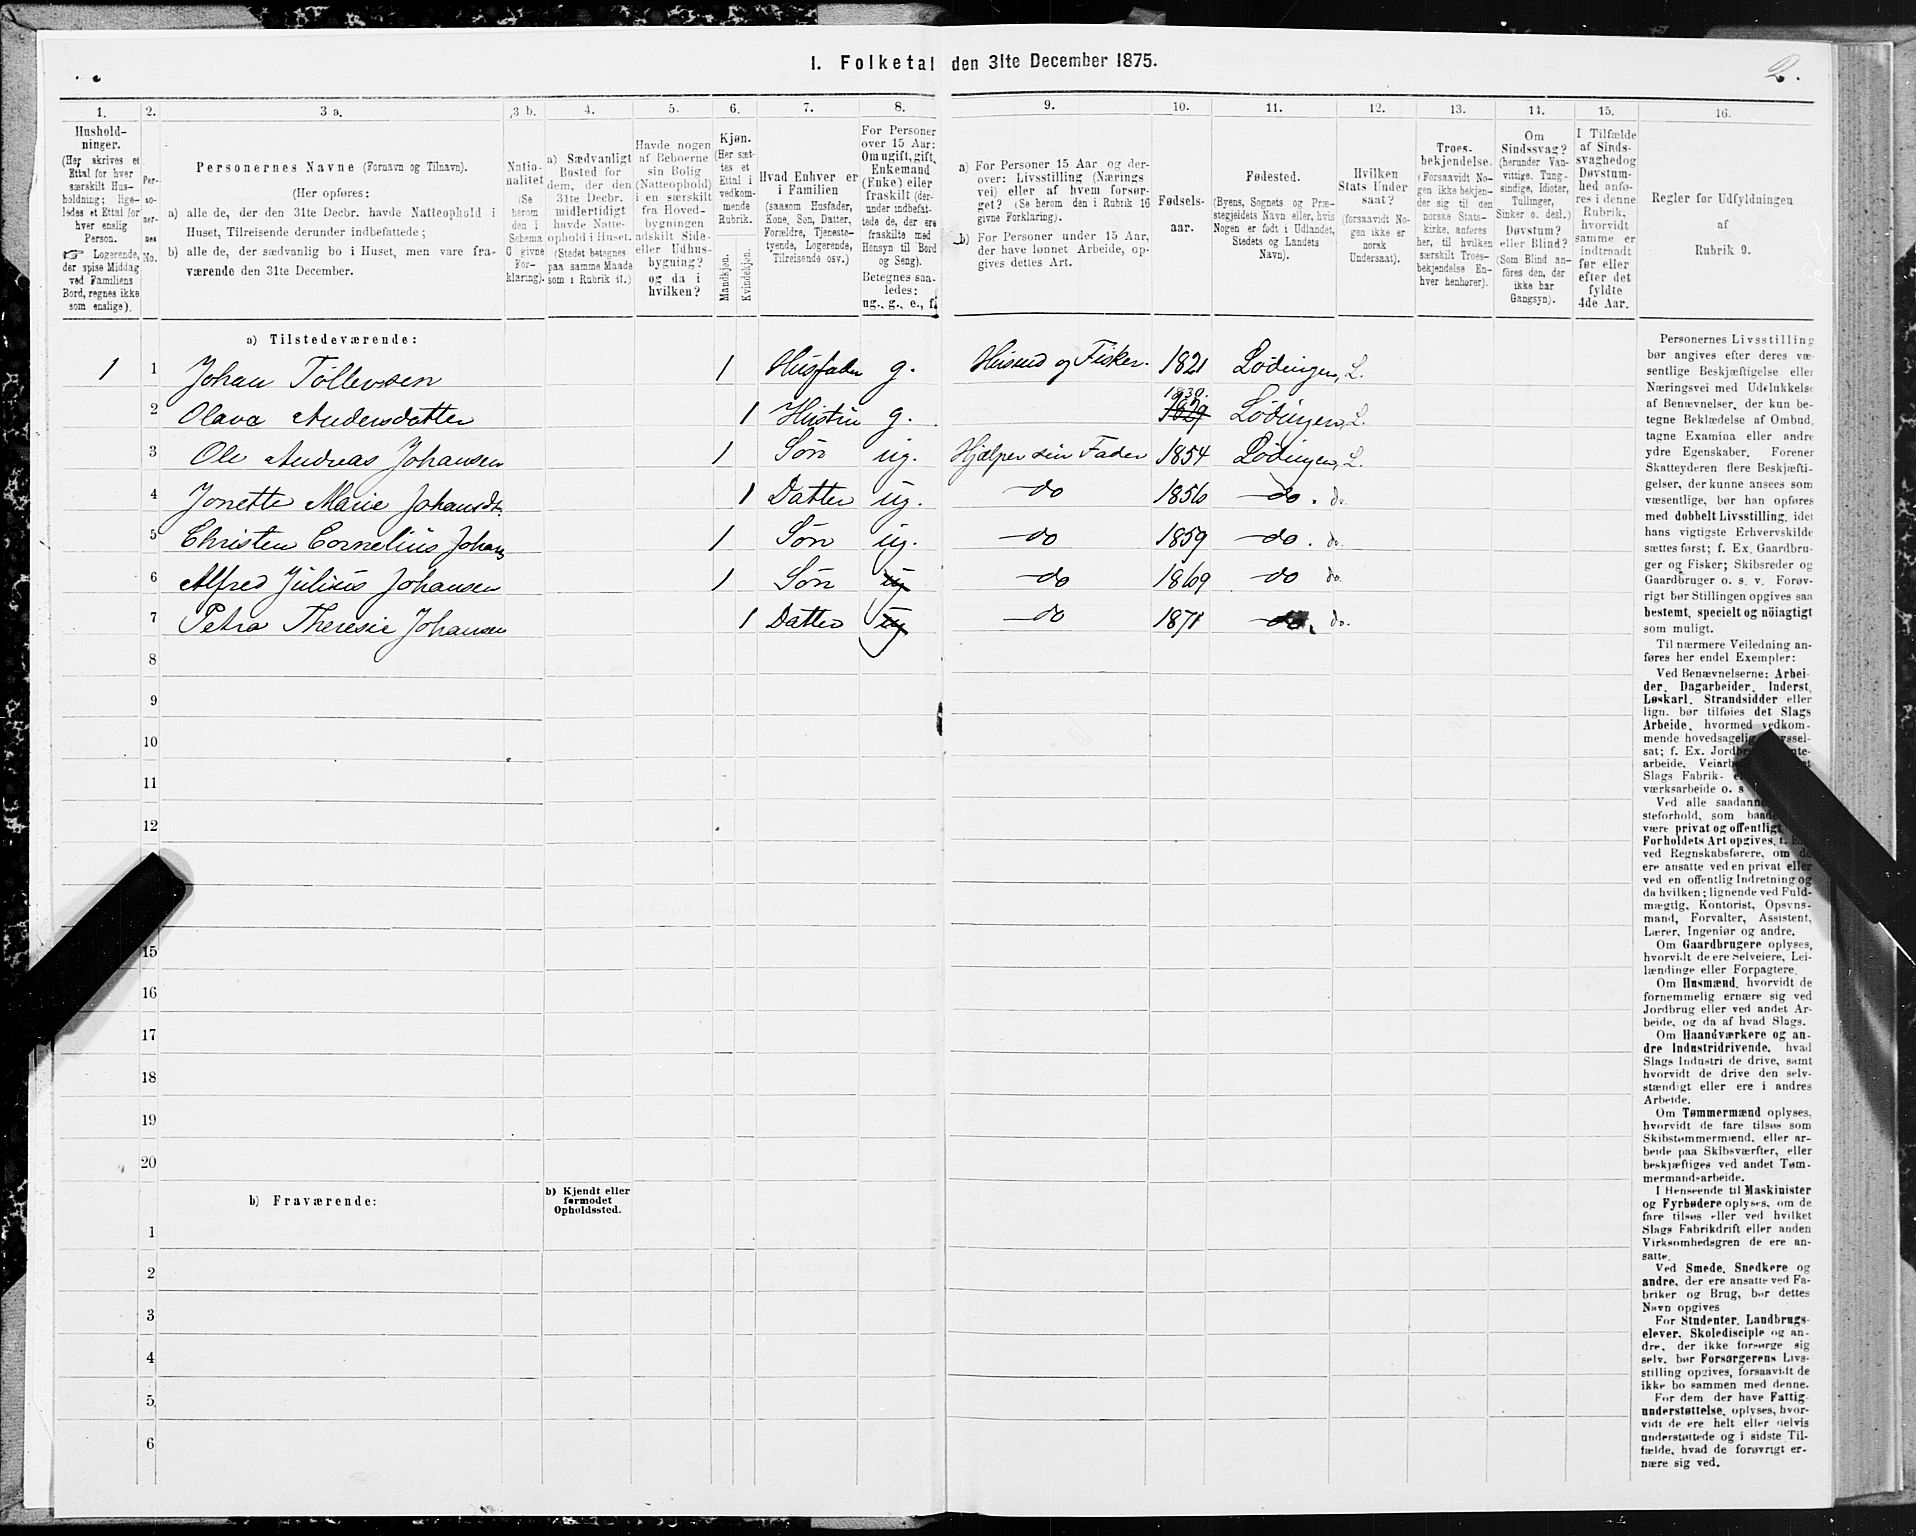 I. Folketal den 31te December 1875.
2.
1.
Hushold-
ninger.
(Her skrives et
Ettal for hver
særskilt Hus-
holdning; lige-
ledes et Ettal for
hver enslig
Person.
☞ Logerende,
der spise Middag
ved Familiens
Bord, regnes ikke
som enslige).
2.
Per-
so-
ner-
nes
No.
3 a.
Personernes Navne (Fornavn og Tilnavn).
(Her opføres:
a) alle de, der den 31te Decbr. havde Natteophold i
Huset, Tilreisende derunder indbefattede;
b) alle de, der sædvanlig bo i Huset, men vare fra-
værende den 31te December.
3 b.
Natio-
nalitet
(Se
herom
den i
Schema
O givne
For-
klaring).
4.
a) Sædvanligt
Bosted for
dem, der den
31te Decbr.
midlertidigt
havde Natte-
ophold i Huset.
(Stedet betegnes
paa samme Maade
som i Rubrik 11.)
5.
Havde nogen
af Beboerne
sin Bolig
(Natteophold)
i en særskilt
fra Hoved-
bygningen
adskilt Side-
eller Udhus-
bygning?
og da i
hvilken?
6.
Kjøn.
(Her sæt-
tes et
Ettal i
vedkom-
mende
Rubrik.
Mandkjøn.
Kvindekjøn.
7.
Hvad Enhver er
i Familien
(saasom Husfader,
Kone, Søn, Datter,
Forældre, Tjeneste-
tyende, Logerende,
Tilreisende osv.)
8.
For Personer
over 15 Aar:
Om ugift, gift,
Enkemand
(Enke) eller
fraskilt (der-
under indbefat-
tede de, der ere
fraskilte med
Hensyn til Bord
og Seng).
Betegnes saa-
ledes:
ug., g., e., f.
9.
a) For Personer 15 Aar og der-
over: Livsstilling (Nærings
vei) eller af hvem forsør-
get? (Se herom den i Rubrik 16
givne Forklaring).
b) For Personer under 15 Aar,
der have lønnet Arbeide, op-
gives dettes Art.
10.
Fødsels-
aar.
11.
Fødested.
(Byens, Sognets og Præ-
stegjeldets Navn eller, hvis
Nogen er født i Udlandet,
Stedets og Landets
Navn).
12.
Hvilken
Stats Under
saat?
(forsaavidt No-
gen ikke er
norsk
Undersaat).
13.
Troes-
bekjendelse.
(Forsaavidt No-
gen ikke bekjen-
der sig til den
norske Stats-
kirke, anføres
her, til hvilken
særskilt Troes-
bekjendelse En-
hver henhører).
14.
Om
Sindssvag?
(herunder Van-
vittige, Tung-
sindige, Idioter,
Tullinger,
Sinker o. desl.)
Døvstum?
eller Blind?
(Som Blind an-
føres den, der
ikke har
Gangsyn).
15.
I Tilfælde
af Sinds-
svaghed og
Døvstum-
hed anfø-
res i denne
Rubrik,
hvorvidt
samme er
indtraadt
før eller
efter det
fyldte
4de Aar.
16.
Regler før Udfyldningen
af
Rubrik 9.
a) Tilstedeværende:
1 1 Johan Tollevsen 1 Husfader g. Husmd og Fisker. 1821 Lødingen, L.
2 Olava Andersdatter 1 Hustru g. 1830. 1829 Lødingen, L.
3 Ole Andreas Johansen 1 Søn ug. Hjælper sin Fader 1854 Lødingen, L.
4 Jonette Marie Johansdt. 1 Datter ug. do 1856 do. do.
5 Christen Cornelius Johans 1 Søn ug. do 1859 do. do.
6 Alfred Julius Johansen 1 Søn ug do 1869 do do.
7 Petra Theresie Johansen 1 Datter ug do 1871 do. do.
8
9
10
11
12
15
16
17
18
19
20
b) Fraværende:
b) Kjendt eller
formodet
Opholdssted.
1
2
3
4
5
6
Personernes Livsstilling
bør angives efter deres væ-
sentlige Beskjæftigelse eller
Næringsvei med Udelukkelse
af Benævnelser, der kun be-
tegne Beklædelse af Ombud,
tagne Examina eller andre
ydre Egenskaber. Forener
Skatteyderen flere Beskjæfti-
gelser, der kunne ansees som
væsentlige, bør han opføres
med dobbelt Livsstilling, idet
hans vigtigste Erhvervskilde
sættes først; f. Ex. Gaardbru-
ger og Fisker; Skibsreder og
Gaardbruger o. s. v. Forøv-
rigt bør Stillingen opgives saa
bestemt, specielt og nöiagtigt
som muligt.
Til nærmere Veiledning an-
føres her endel Exempler:
Ved Benævnelserne: Arbei-
der, Dagarbeider, Inderst,
Løskarl, Strandsidder eller
lign. bør tilføies det Slags
Arbeide, hvormed vedkom-
mende hovedsagelig
sat; f. Ex.
arbeide, 
Slags Fabrik-
værksarbeide o. s
Ved alle saadanne
steforhold, som
være privat og offentligt,
Forholdets Art opgives, f.
ved Regnskabsførere, om de
ere ansatte ved en privat eller
ved en offentlig Indretning og
da hvilken; lignende ved Fuld-
mægtig, Kontorist, Opsyns-
mand, Forvalter, Assistent,
Lærer, Ingeniør og andre.
Om Gaardbrugere oplyses,
hvorvidt de ere Selveiere, Lei-
lændinge eller Forpagtere.
Om Husmænd, hvorvidt de
fornemmelig ernære sig ved
Jordbrug eller ved andet Ar-
beide, og da af hvad Slags.
Om Haandværkere og an-
dre Industridrivende, hvad
Slags Industri de drive, samt
hvorvidt de drive den selv-
stændigt eller ere i andres
Arbeide.
Om Tømmermænd oplyses,
hvorvidt de fare tilsøs som
Skibstømmermænd, eller ar-
beide paa Skibsværfter, eller
beskjæftiges ved andet Tøm-
mermand-arbeide.
I Henseende til Maskinister
og Fyrbødere oplyses, om de
fare tilsøs eller ved hvilket
Slags Fabrikdrift eller anden
Virksomhedsgren de ere an-
satte.
Ved Smede, Snedkere og
andre, der ere ansatte ved Fa-
briker og Brug, bør dettes
Navn opgives
For Studenter, Landbrugs-
elever, Skoledisciple og an-
dre, der ikke forsørge sig
selv, bør Forsørgerens Livs-
stilling opgives, forsaavidt de
ikke bo sammen med denne.
For dem der have Fattig-
understøttelse, oplyses, hvor-
vidt de ere helt eller delvis
understøttede og i sidste Til-
fælde, hvad de forøvrigt er-
nære sig ved.